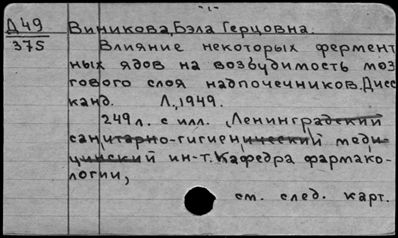 -1-
Д49
375
Виникова, Бэла Герцовна.
Влияние некоторых фермент
ных ядов на возбудимость моз
гового слоя надпочечников. Дисс
канд. Л., 1949.
249 л. с илл. (Ленинградский
санитарно-гигиенический меди-
цинский ин-т. Кафедра фармако-
логии,
см. след. карт.